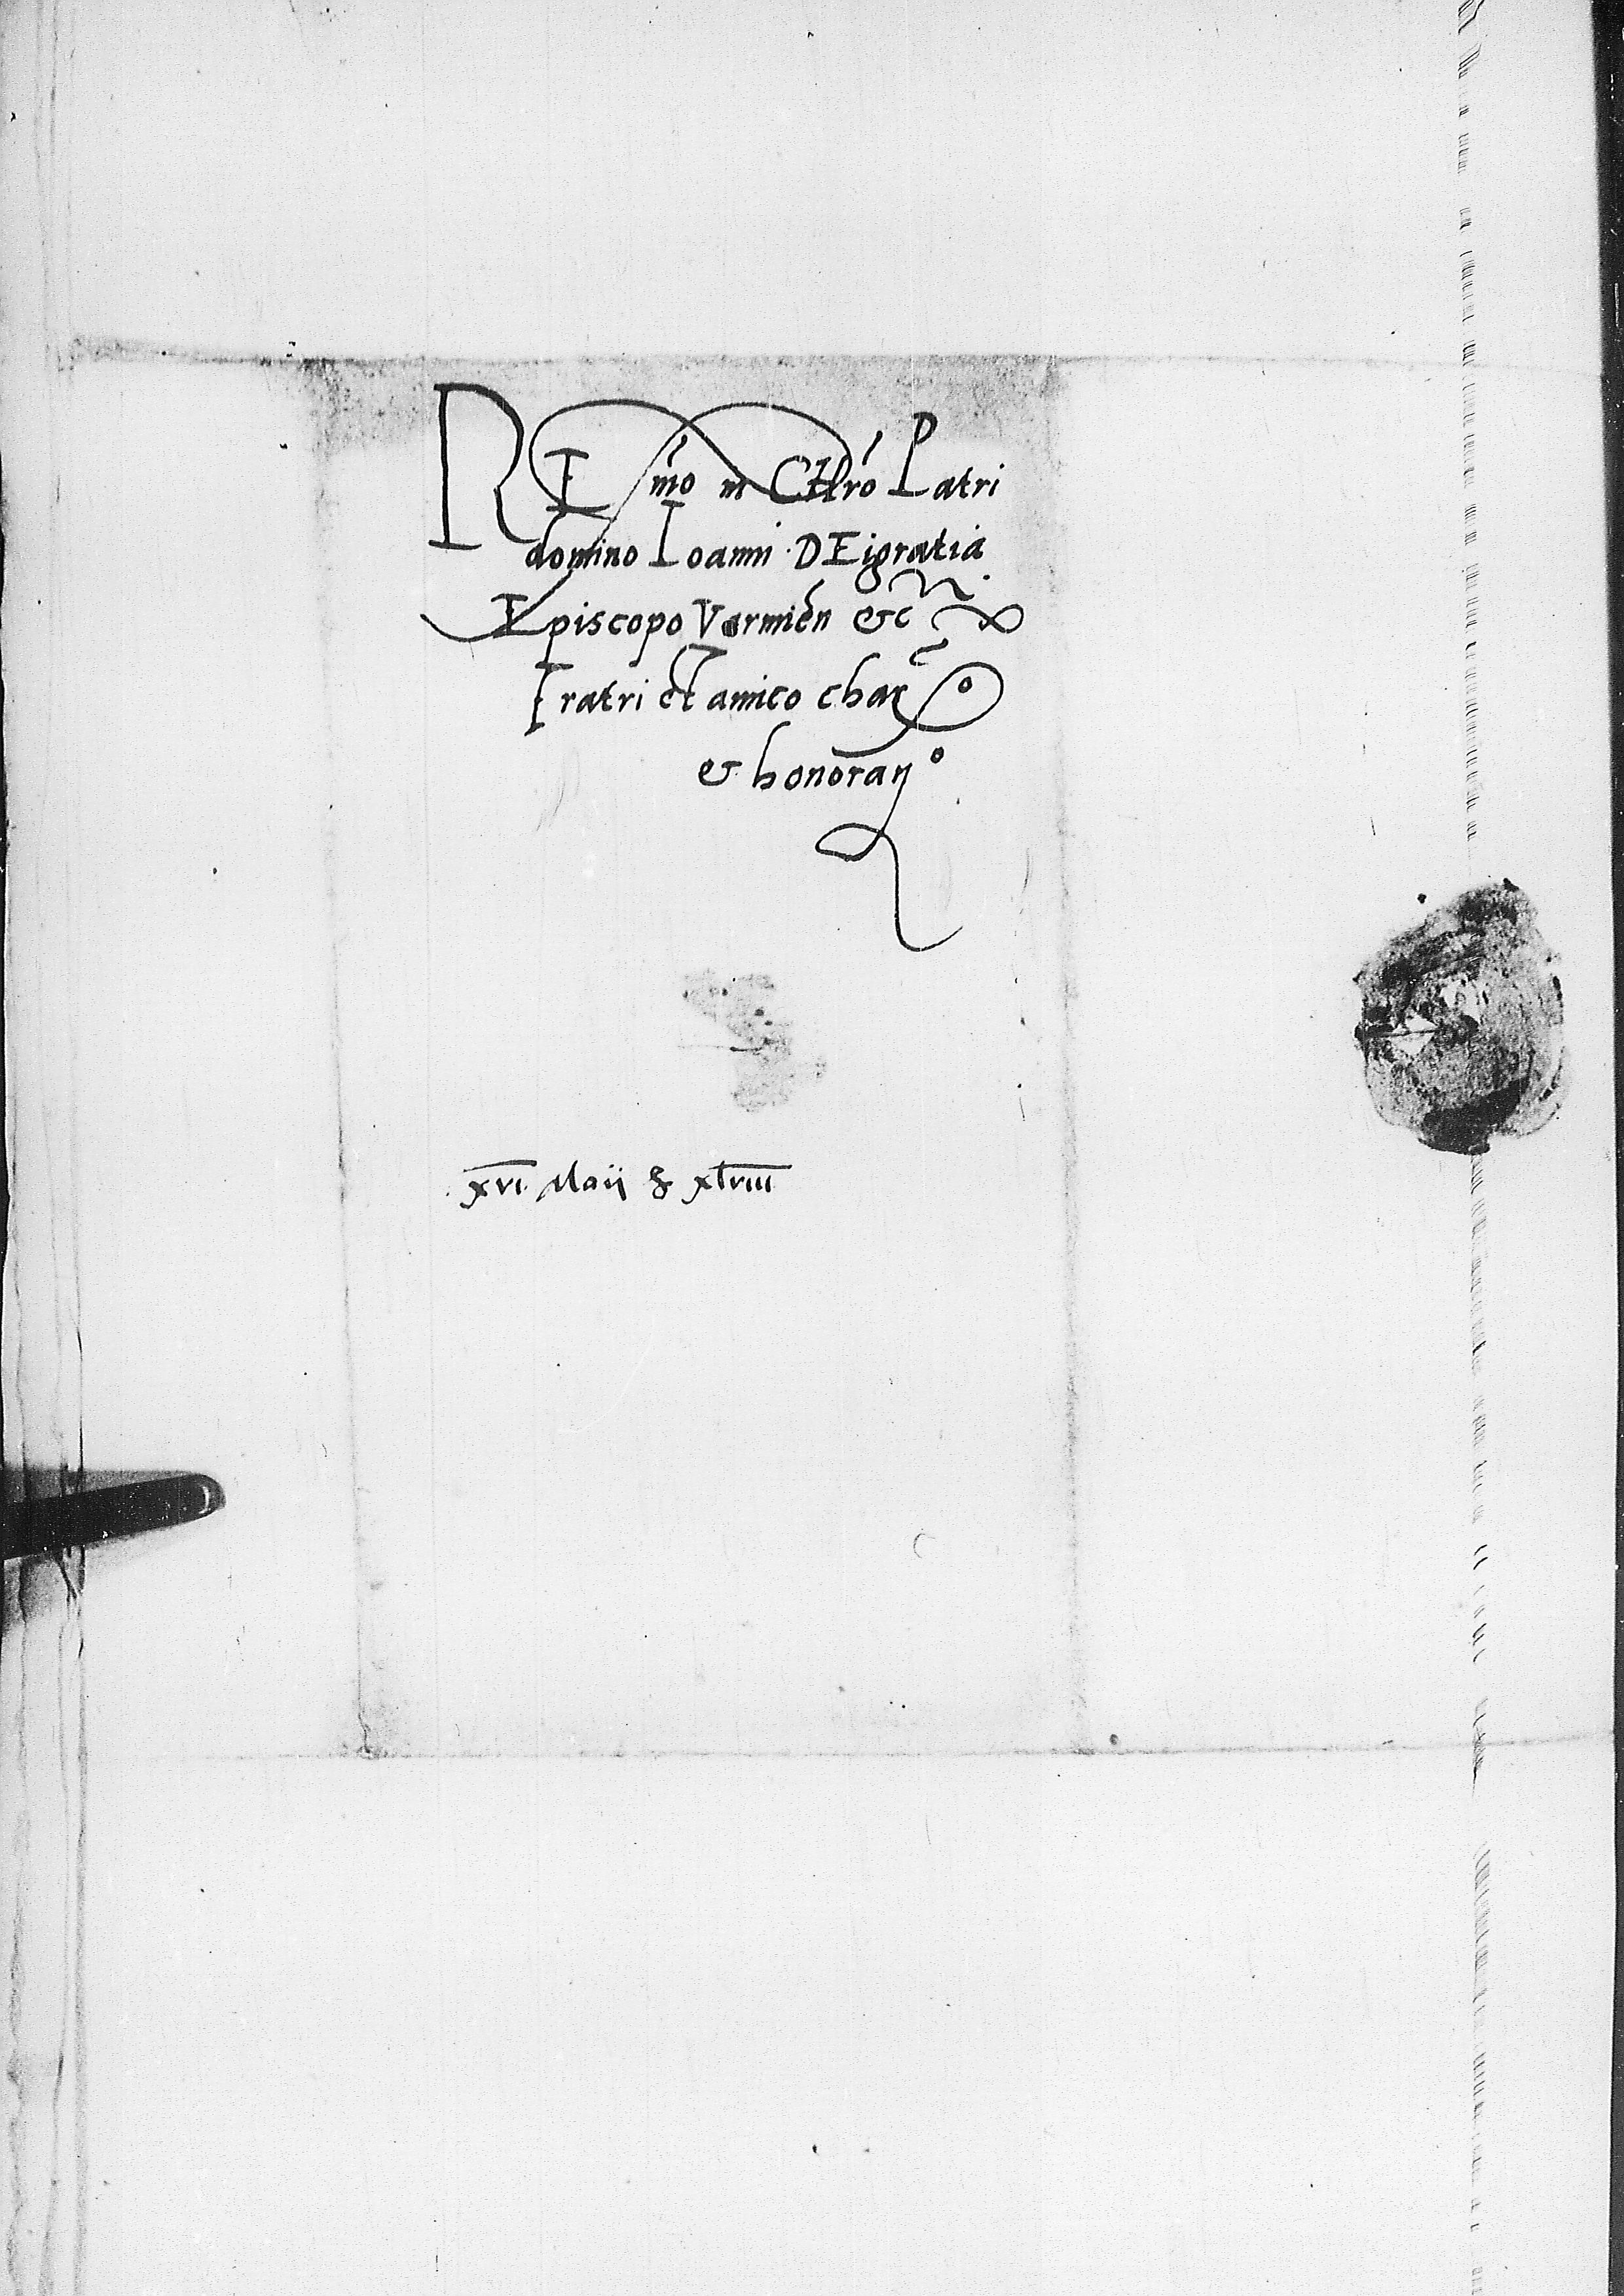 REmo in CHro Patri
domino Ioanni DEi gratia
Episcopo Varmien etc
Fratri et amico char̃ o
et honoran o
xvi Maii xlviii